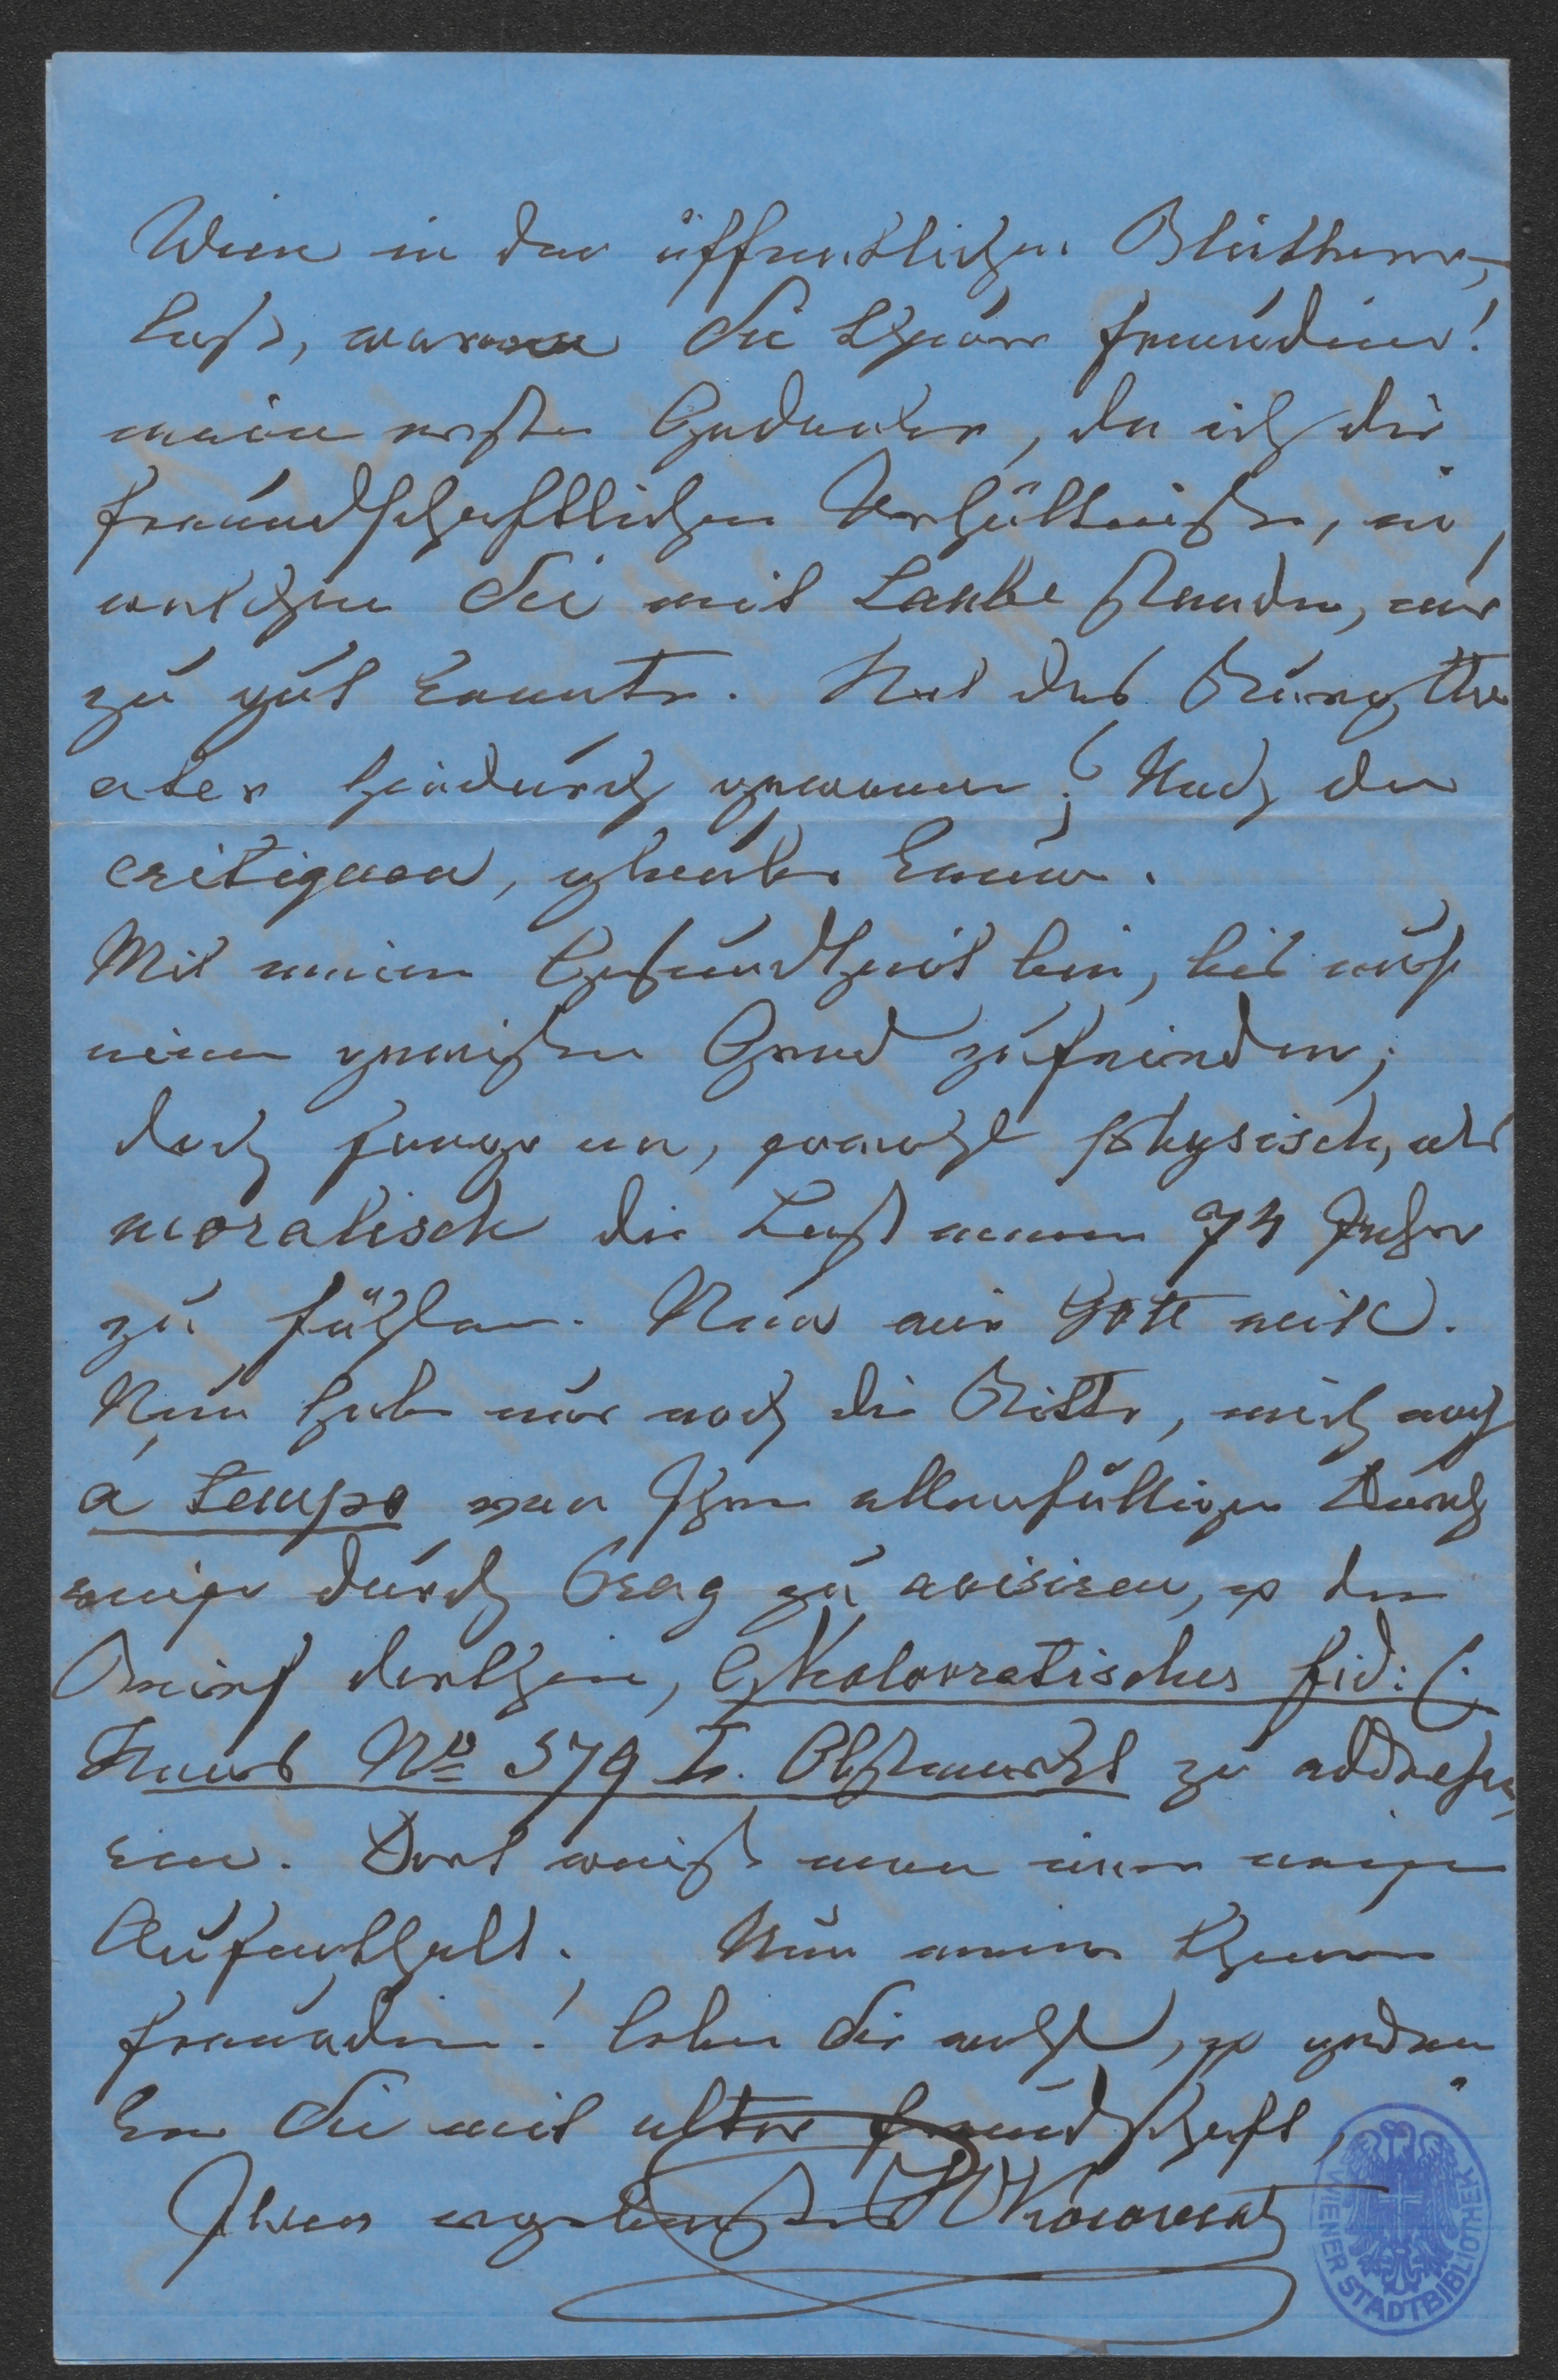 Wien in den öffentlichen Blättern
las, waren Sie theure Freundin!
mein erster Gedanke, da ich die
freundschaftlichen Verhältnisse, in
welchen Sie mit Laube standen, nur
zu gut kannte. Hat das Burgthe
ater hiedurch gewonnen? Nach den
critiquen, glaube kaum.
Mit meiner Gesundheit bin, bis auf
einen gewissen Grad zufrieden;
doch fange an, sowohl physisch, als
moralisch die Last meiner 74 Jahre
zu fühlen. Nun wie Gott will.
Nun habe nur noch die Bitte, mich noch
a tempo von Ihrer allenfälligen Durch
reise durch Prag zu avisiren, u den
Brief dorthin, Gf Kolovratisches fid: C.
Haus No 579 Obstmarkt zu addressi
ren. Dort weiß man immer meinen
Aufenthalt. Nun meine theure
Freundin! leben Sie wohl, u geden
ken Sie mit alter Freundschaft,
Ihres ergebensten Kolowrat
WIENER STADTBIBLIOTHEK